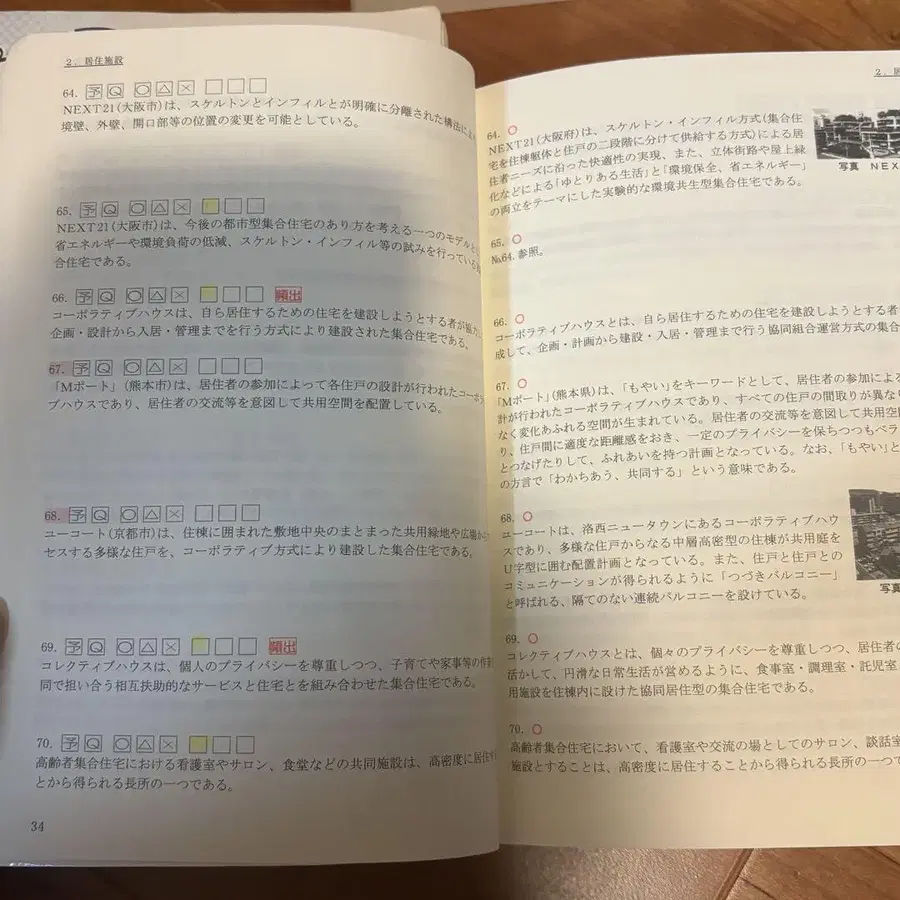 2. 居住施設
64. 予 Q ○ △ × □ □ □
NEXT21(大阪市)は、スケルトンとインフィルとが明確に分離された構法によ
境壁、外壁、開口部等の位置の変更を可能としている。
65. 予 Q ○ △ × □ □ □
NEXT21(大阪市)は、今後の都市型集合住宅のあり方を考える一つのモデルと
省エネルギーや環境負荷の低減、スケルトン・インフィル等の試みを行っている
合住宅である。
66. 予 Q ○ △ × □ □ □ 頻出
コーポラティブハウスは、自ら居住するための住宅を建設しようとする者が協力
企画・設計から入居・管理までを行う方式により建設された集合住宅である。
67. 予 Q ○ △ × □ □ □
「Mポート」(熊本市)は、居住者の参加によって各住戸の設計が行われたコーポ
ブハウスであり、居住者の交流等を意図して共用空間を配置している。
68. 予 Q ○ △ × □ □ □
ユーコート(京都市)は、住棟に囲まれた敷地中央のまとまった共用緑地や広場か
セスする多様な住戸を、コーポラティブ方式により建設した集合住宅である。
69. 予 Q ○ △ × □ □ □ 頻出
コレクティブハウスは、個人のプライバシーを尊重しつつ、子育てや家事等の作業
同で担い合う相互扶助的なサービスと住宅とを組み合わせた集合住宅である。
70. 予 Q ○ △ × □ □ □
高齢者集合住宅における看護室やサロン、食堂などの共同施設は、高密度に居住
とから得られる長所の一つである。
34
2. 居
64. ○
NEXT21(大阪府)は、スケルトン・インフィル方式(集合住
宅を住棟躯体と住戸の二段階に分けて供給する方式)による居
住者ニーズに沿った快適性の実現、また、立体街路や屋上緑
化などによる「ゆとりある生活」と「環境保全、省エネルギー」
の両立をテーマにした実験的な環境共生型集合住宅である。
写真 NEX
65. ○
№64. 参照。
66. ○
コーポラティブハウスとは、自ら居住するための住宅を建設しようとする者
成して、企画・計画から建設・入居・管理まで行う協同組合運営方式の集合
67. ○
「Mポート」(熊本県)は、「もやい」をキーワードとして、居住者の参加によ
計が行われたコーポラティブハウスであり、すべての住戸の間取りが異な
なく変化あふれる空間が生まれている。居住者の交流等を意図して共用空
り、住戸間に適度な距離感をおき、一定のプライバシーを保ちつつもベラ
とつなげたりして、ふれあいを持つ計画となっている。なお、「もやい」と
の方言で「わかちあう、共同する」という意味である。
68. ○
ユーコートは、洛西ニュータウンにあるコーポラティブハウ
スであり、多様な住戸からなる中層高密型の住棟が共用庭を
U字型に囲む配置計画となっている。また、住戸と住戸との
コミュニケーションが得られるように「つづきバルコニー」
と呼ばれる、隔てのない連続バルコニーを設けている。
写真
69. ○
コレクティブハウスとは、個々のプライバシーを尊重しつつ、居住者の
活かして、円滑な日常生活が営めるように、食事室・調理室・託児室
用施設を住棟内に設けた協同居住型の集合住宅である。
70. ○
高齢者集合住宅において、看護室や交流の場としてのサロン、談話室
施設とすることは、高密度に居住することから得られる長所の一つ